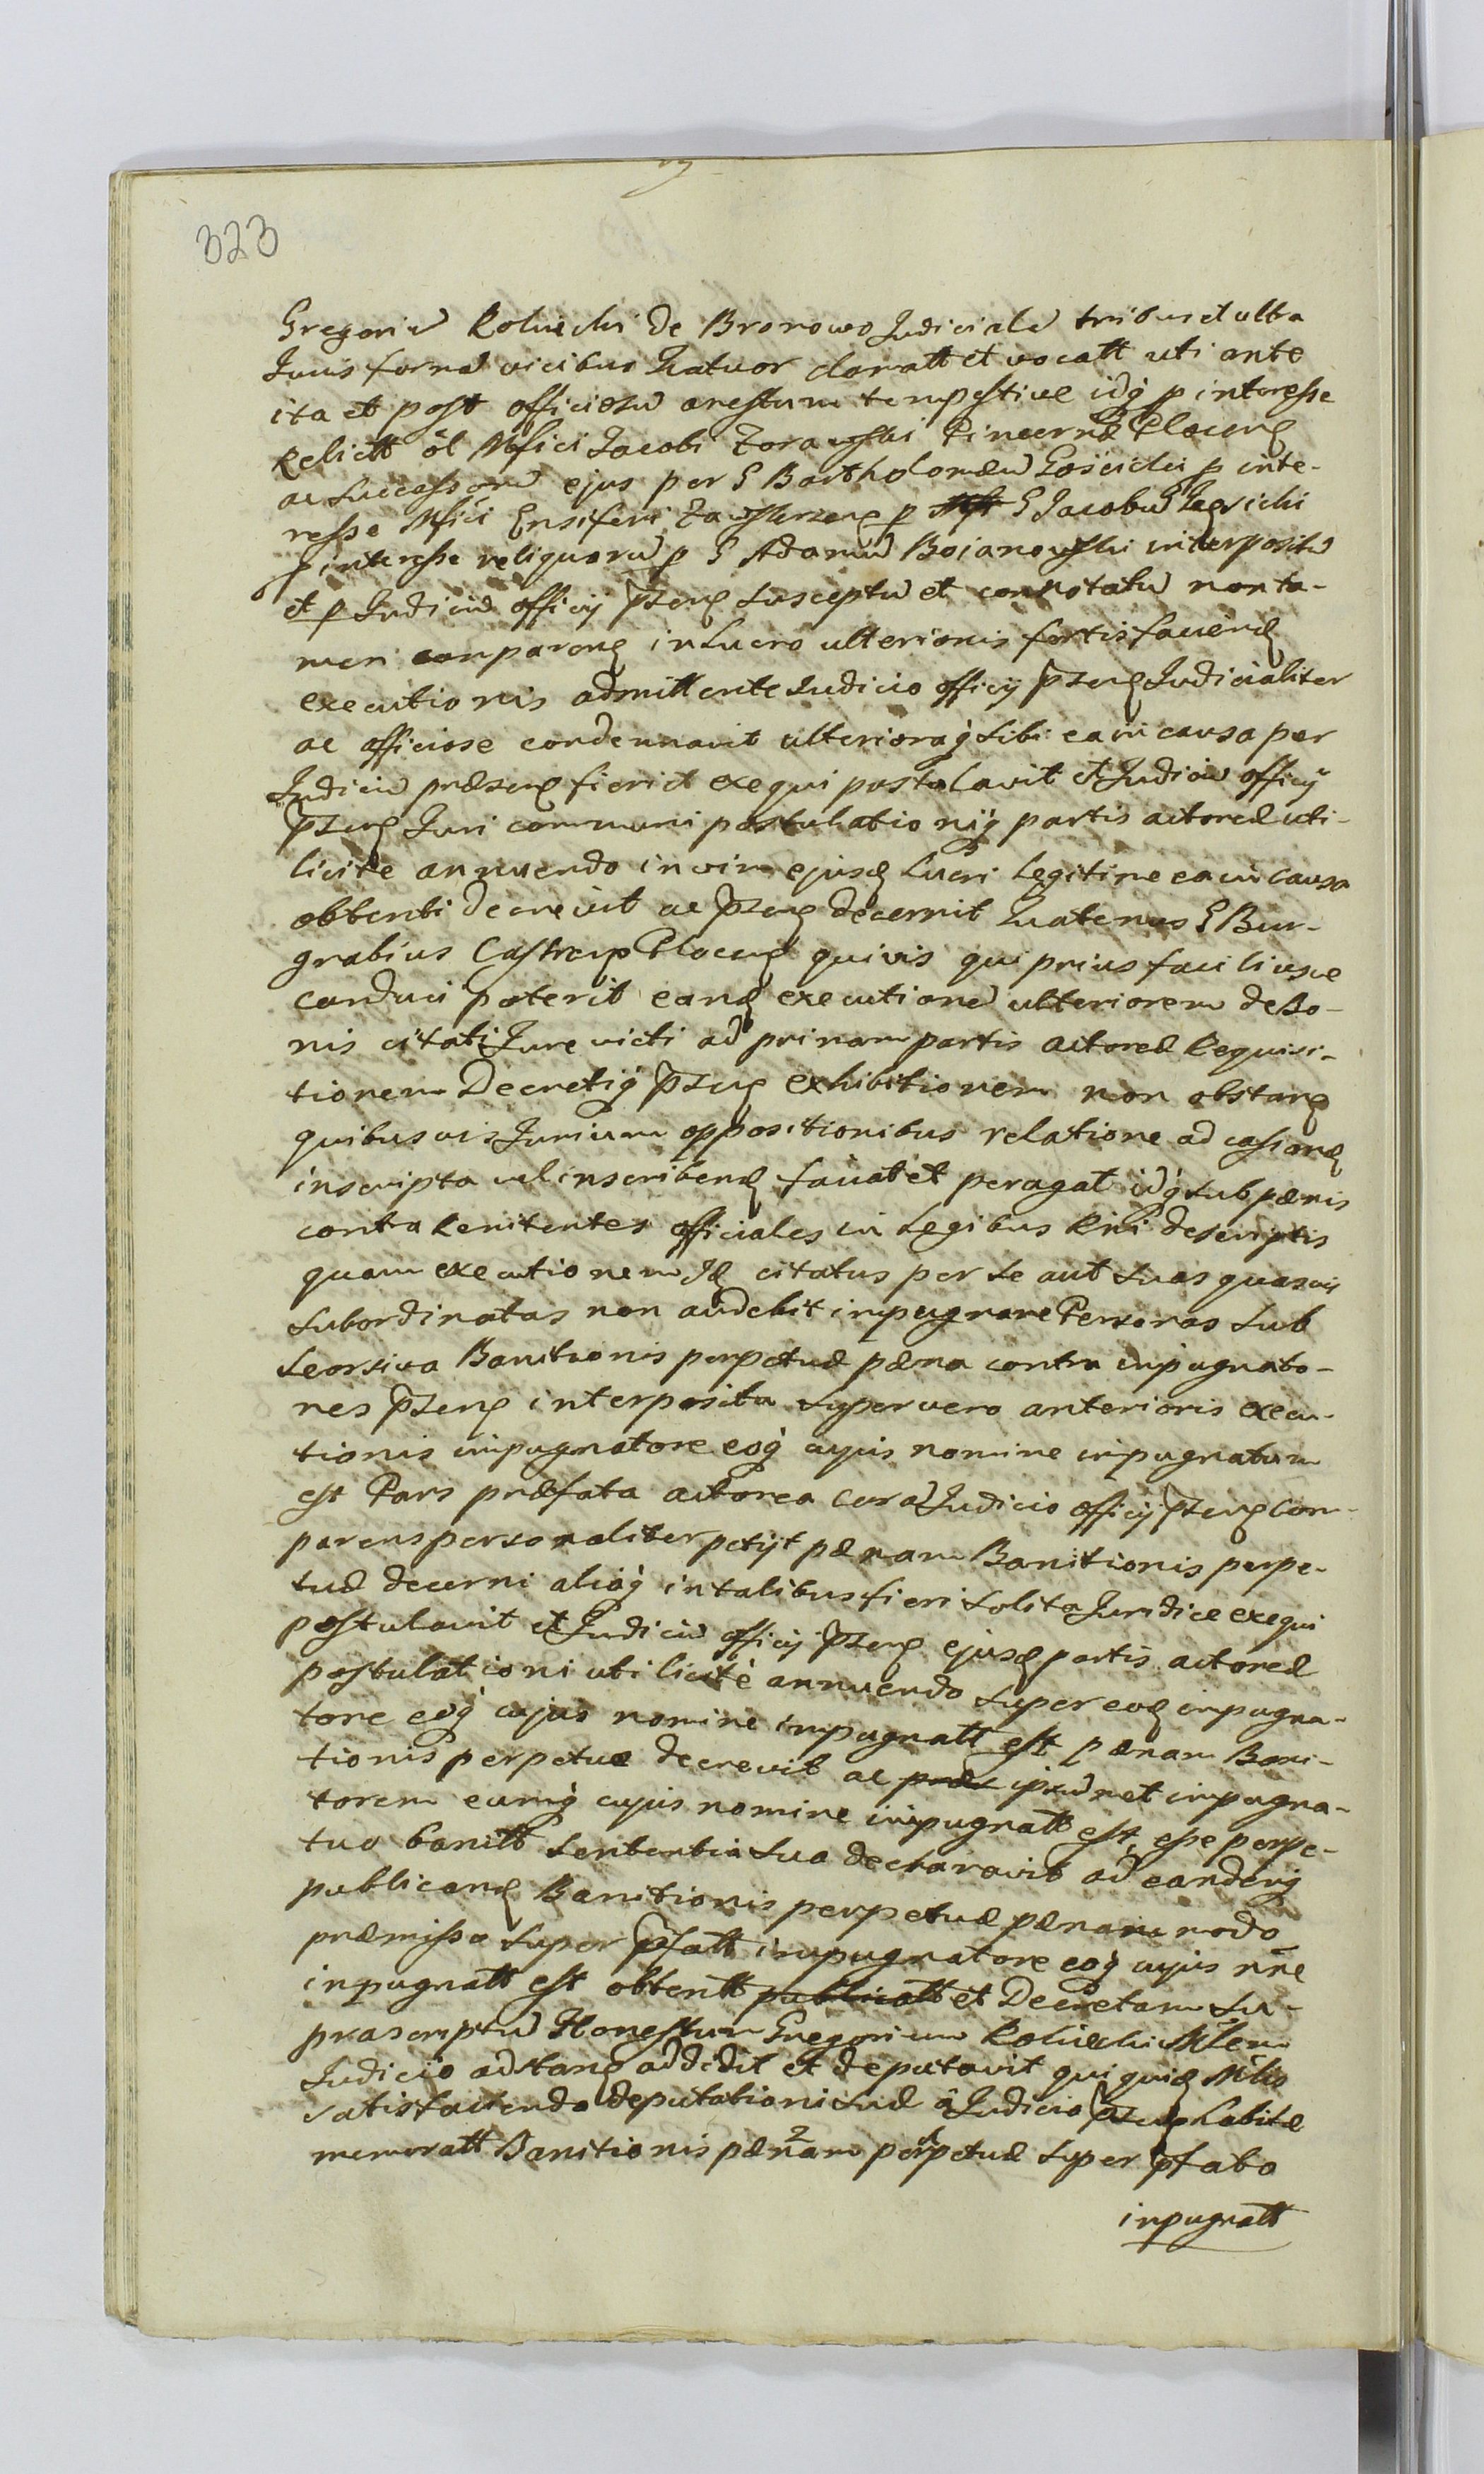 323
Gregoriu Roluichi de Bronowo Judicialē tribus et ultra
Juris formā vicibus Quatuor clamatt et vocatt uti ante
ita et post officiosū arestum tempestive idq̃ p interesse
Relictt ol Mfici Jacobi Zorawski Pincernæ Plocen̄
ac Successorū ejus per G Bartholomæū Gościcki p inte-
resse Mfici Ensiferi Zawskrzen̄ p G Jacobū
p interesse reliquorū p G Adamū Boianowski interpositū
et p Judiciū officij p̄zen̄ susceptū et connotatū non ta-
men comparen̄ in lucro ulterioris fortis faciend̄
executionis admittente Judicio officij p̄zen̄ Judicialiter
ac officiose condemnavit ulterioraq̃ sibi ea in causa per
Judiciū præsen̄ fieri et exequi postulavit et Judiciū officij
p̄zen̄ Juri communi postulationiq̃ partis actoreæ uti
licitæ annuendo in vim ejusd̄ lucri legitime ea in causa
obtenti decrevit ac p̄zen̄ decernit Quatenus G Bur-
grabius Castren̄ Plocen̄ quivis qui prius faciliusve
conduci poterit eand̄ executionē ulteriorem de Bo-
nis citati Jure victi ad primam partis actoreæ Requisi-
tionem Decretiq̃ p̄zen̄ exhibitionem non obstan̄
quibusvis Jurium oppositionibus relatione ad
inscripta vel inscribend̄ faciat et peragat idq̃ sub pænis
contra Renitentes officiales in Legibus Rni descriptis
quam executionem Id̄ citatus per se aut suas quasvis
subordinatas non audebit impugnare Personas sub
seorsiva Banitionis perpetuæ pæna contra impugnato-
res p̄zen̄ interposita super vero anterioris execu-
tionis impugnatore eoq̃ cujus nomine impugnatum
est Pars præfata actorea corā Judicio officij p̄zen̄ com-
parens personaliter petijt pænam Banitionis perpe-
tuæ decerni aliaq̃ in talibus fieri solita Juridice exequi
postulavit et Judiciū officij p̄zen̄ ejusd̄ partis actoreæ
postulationi uti licitæ annuendo super eod̄ impugna-
tore eoq̃ cujus nomine impugnatt est pænam Bani-
tionis perpetuæ decrevit ac ipsūmet impugna-
torem eumq̃ cujus nomine impugnatt est, esse perpe-
tuo banitt sententia sua declaravit ad eandemq̃
publicand̄ Banitionis perpetuæ pænam modo
præmisso super p̄fatt impugnatore eoq̃ cujus nn̄e
inpugnatt est obtentt publicatt et Decretam su-
prascriptū Honestum Gregorium Roluichi Mlem
Judicio adstan̄ addidit et deputavit qui quid̄ Mlis
satisfaciendo deputationi suæ â Judicio p̄zen̄ habitæ
memoratt Banitionis pænam perpetuæ super p̄fato
inpugnatt